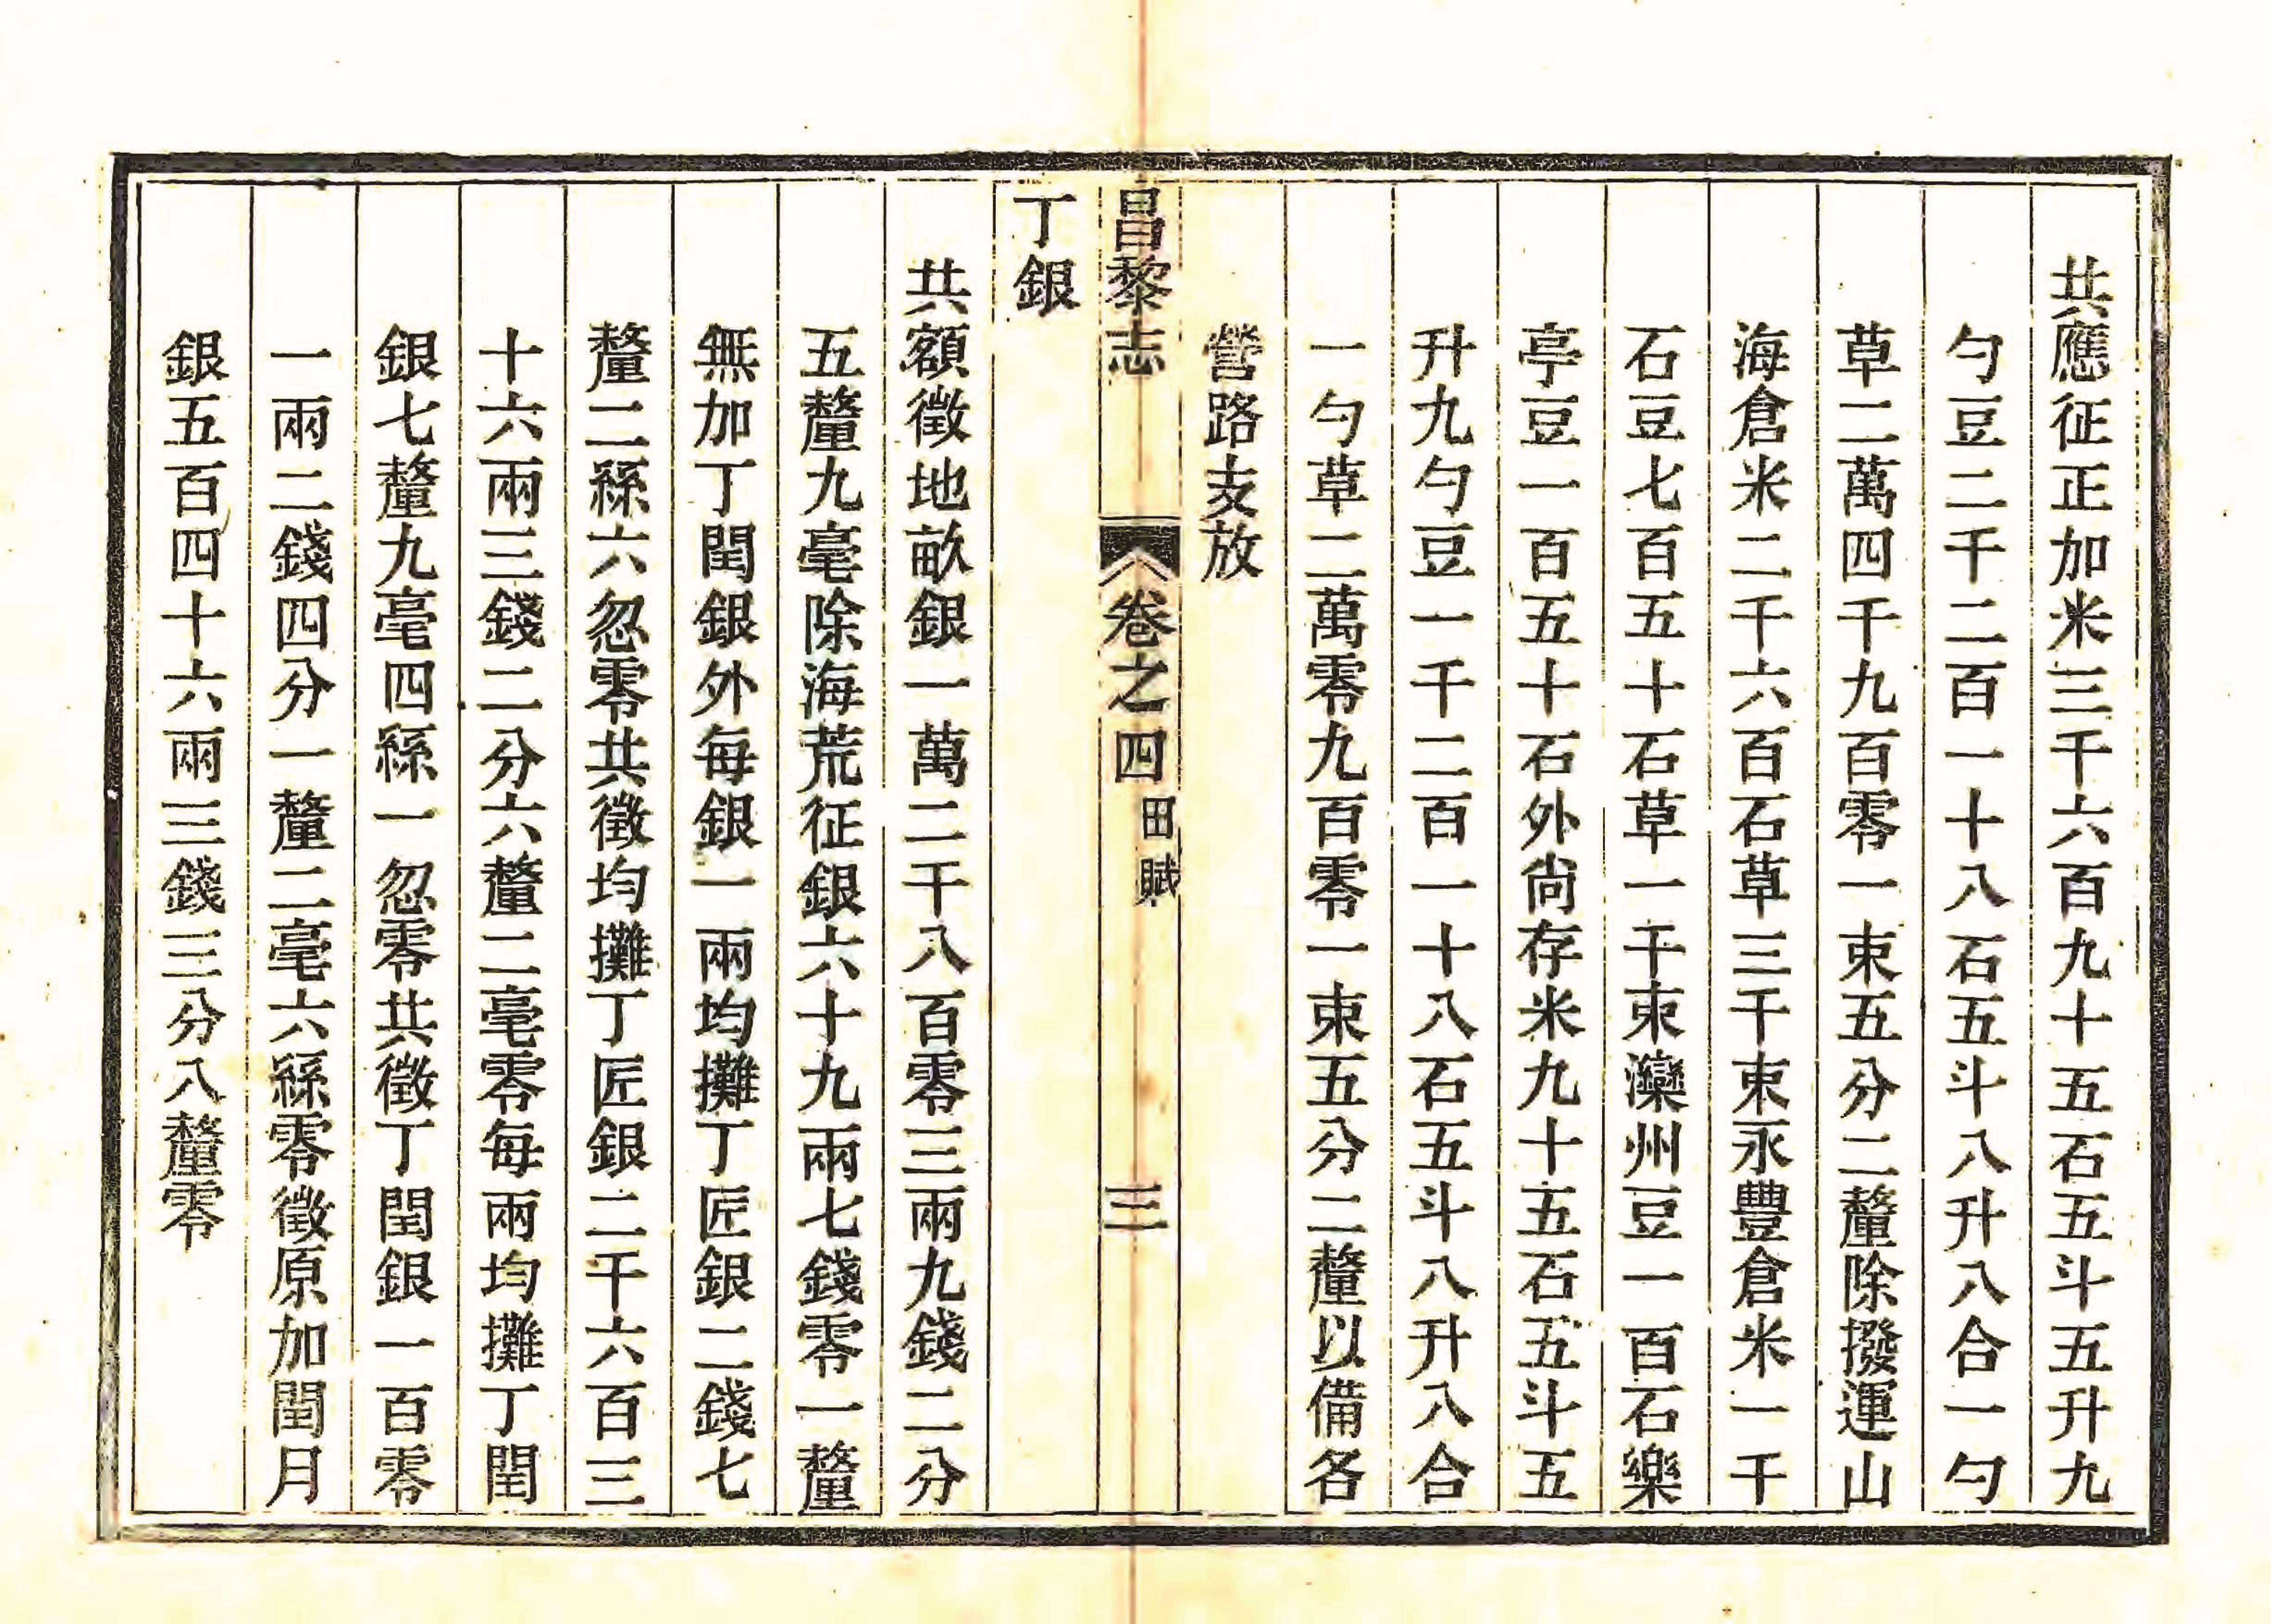 共應征正加米三千六百九十五石五斗五升九
勺豆二千二百一十八石五斗八升八合一勺
草二萬四千九百零一束五分二釐除撥運山
海倉米二千六百石草三千束永豐倉米一千
石豆七百五十石草一千束灤州豆一百石樂
亭豆一百五十石外尚存米九十五石五斗五
升九勺豆一千二百一十八石五斗八升八合
一勺草二萬零九百零一束五分二釐以備各
營路支放
昌黎志 卷之四 田賦 三
丁銀
共額徵地畝銀一萬二千八百零三兩九錢二分
五釐九毫除海荒征銀六十九兩七錢零一釐
無加丁閏銀外每銀一兩均攤丁匠銀二錢七
釐二絲六忽零共徵均攤丁匠銀二千六百三
十六兩三錢二分六釐二毫零每兩均攤丁閏
銀七釐九毫四絲一忽零共徵丁閏銀一百零
一兩二錢四分一釐二毫六絲零徵原加閏月
銀五百四十六兩三錢三分八釐零